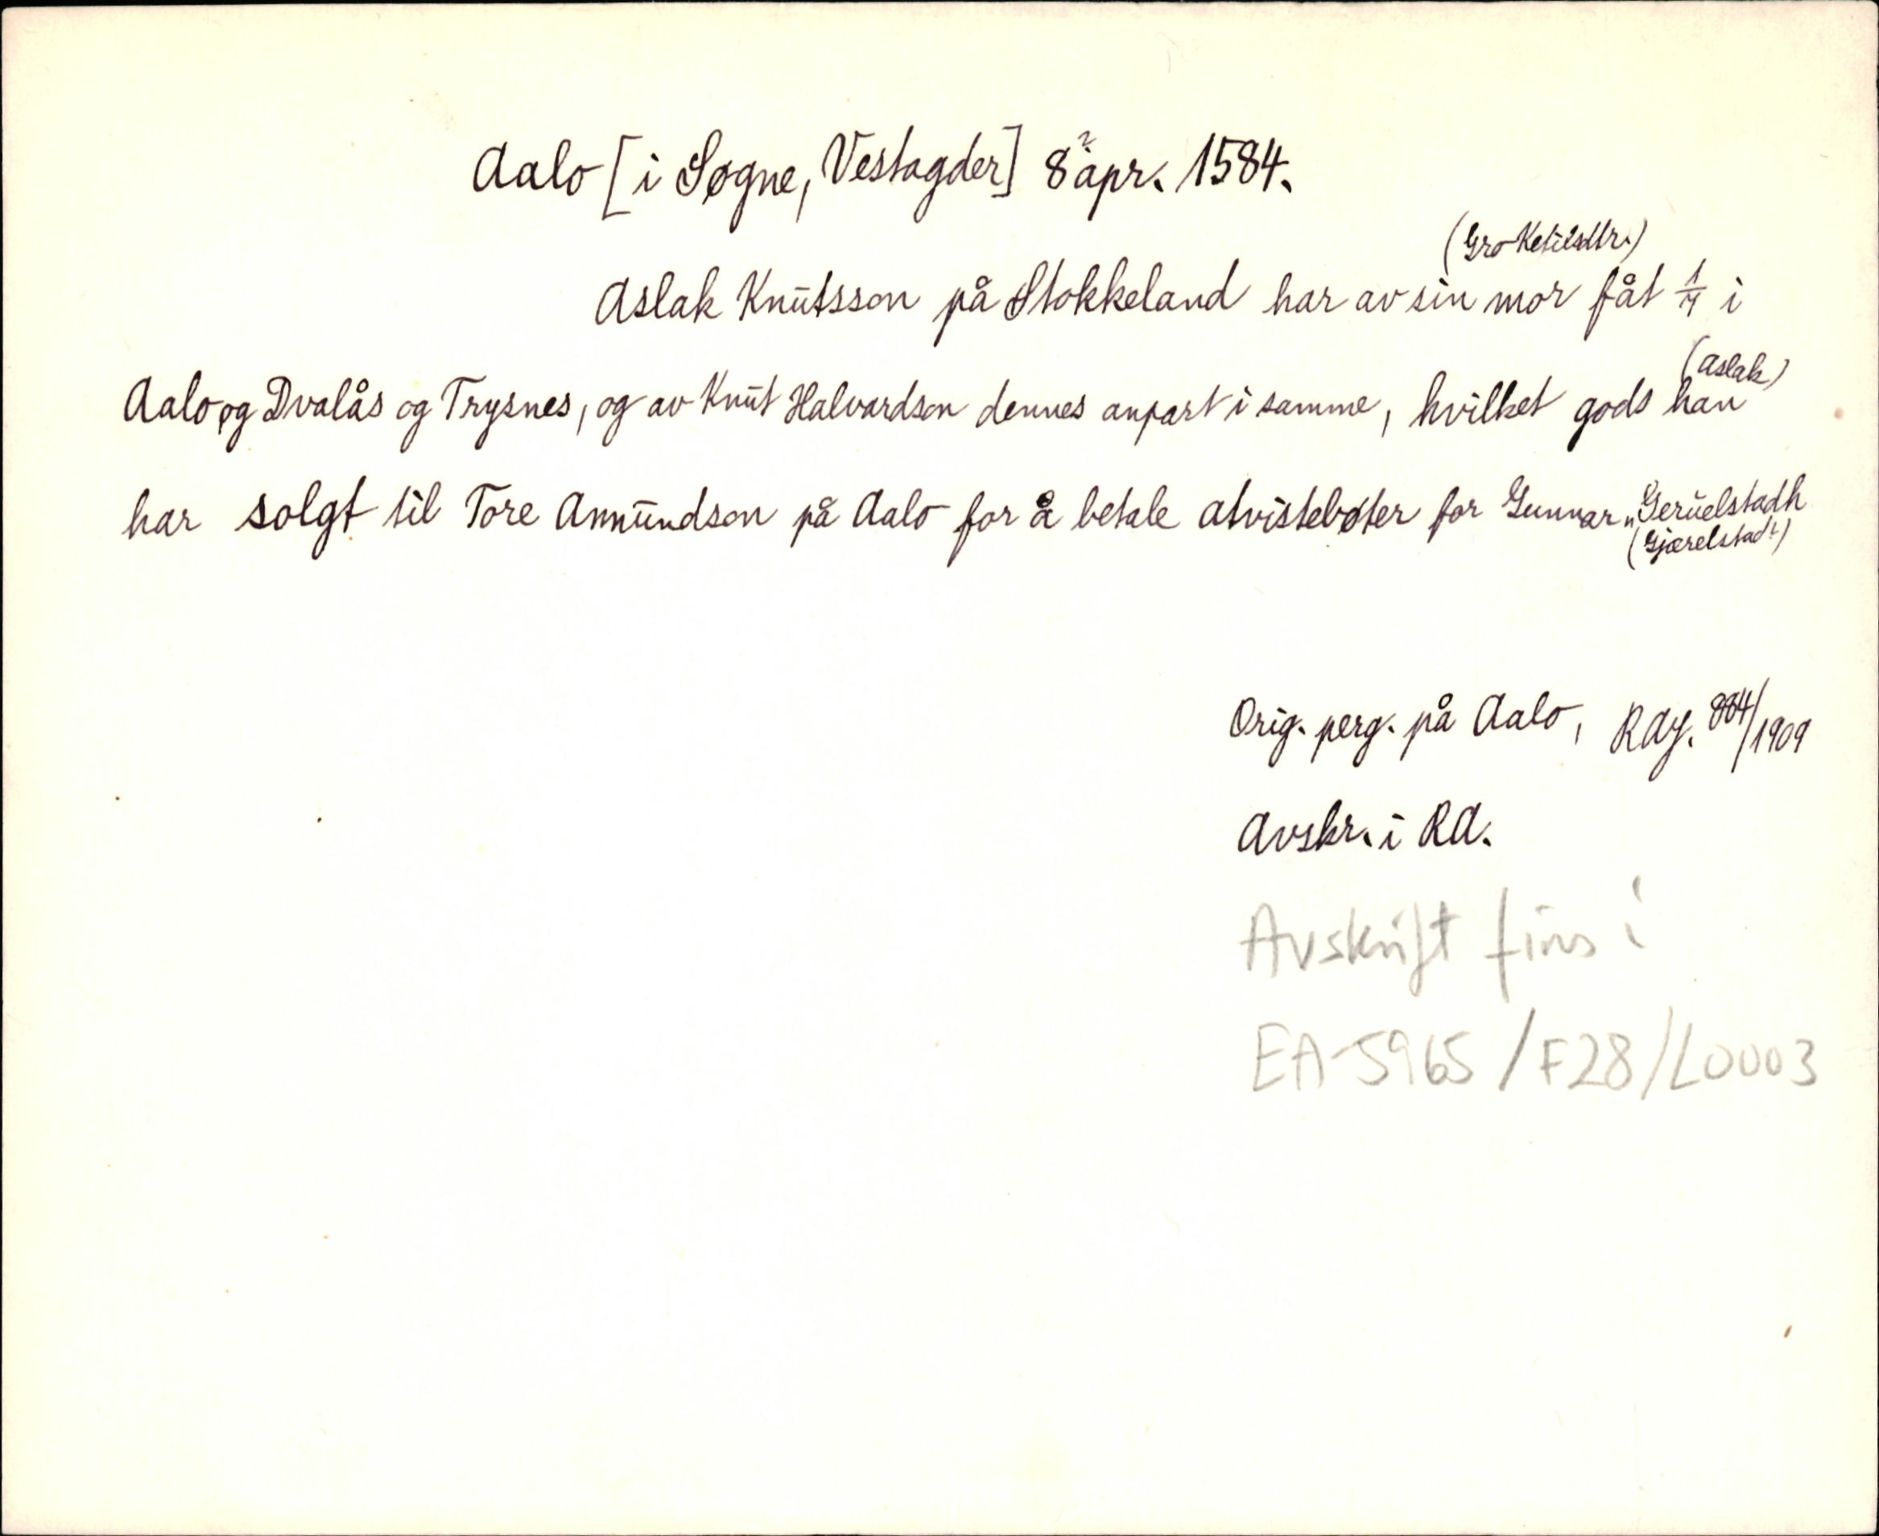 Aalo [i Søgne, Vestagder] 8? apr. 1584.
(Gro Ketilsdtr.)
Aslak Knutsson på Stokkeland har av sin mor fåt 1/4 i
(Aslak)
Aalo, og Dvalås og Trysnes, og av Knut Halvardson dennes anpart i samme, hvilket gods han
har solgt til Tore Amundson på Aalo for å betale atvistebøter for Gunnar „Geruelstadh
(Gjærelstad?)
Orig. perg. på Aalo, RAJ. 884/1909
Avskr. i RA.
Avskrift fins i
EA-5965/F28/L0003